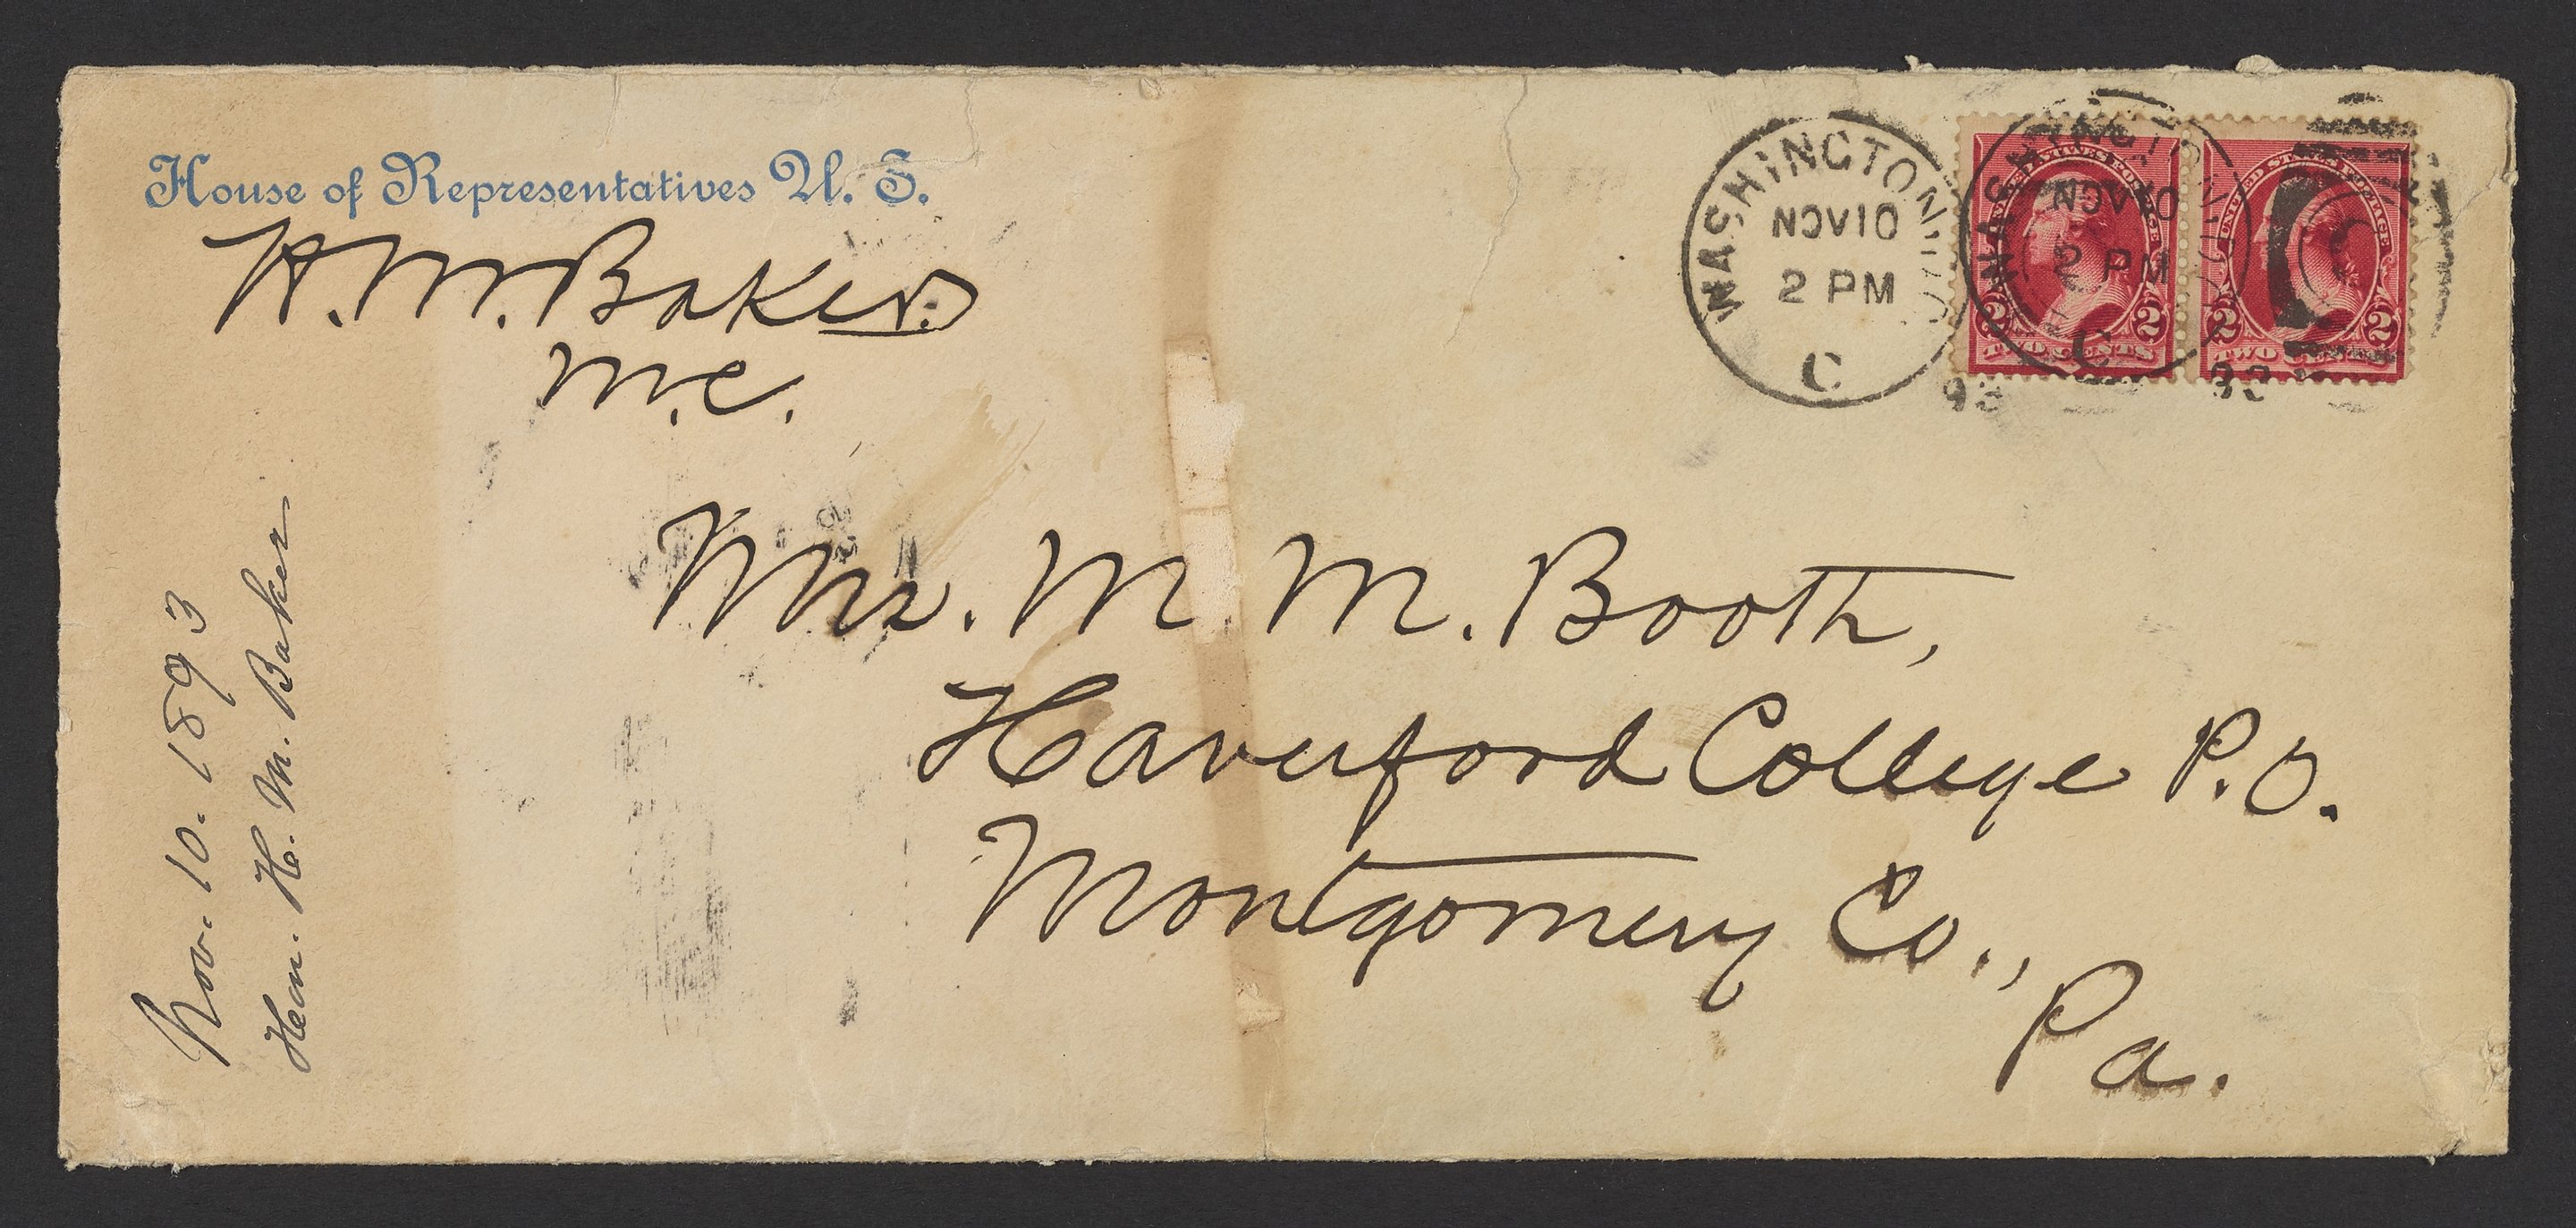 House of Representatives U. S.
H. M. Baker.
M.C.
WASHINGTON
NOV 10
2 PM
C
93
WASHINGTON
NOV 10
2 PM
C
93
UNITED STATES POSTAGE
2 2
TWO CENTS
2 2
TWO
Mrs. M. M. Booth,
Haverford College P.O.
Montgomery Co.,
Pa.
Nov. 10. 1893
Hon. H. M. Baker